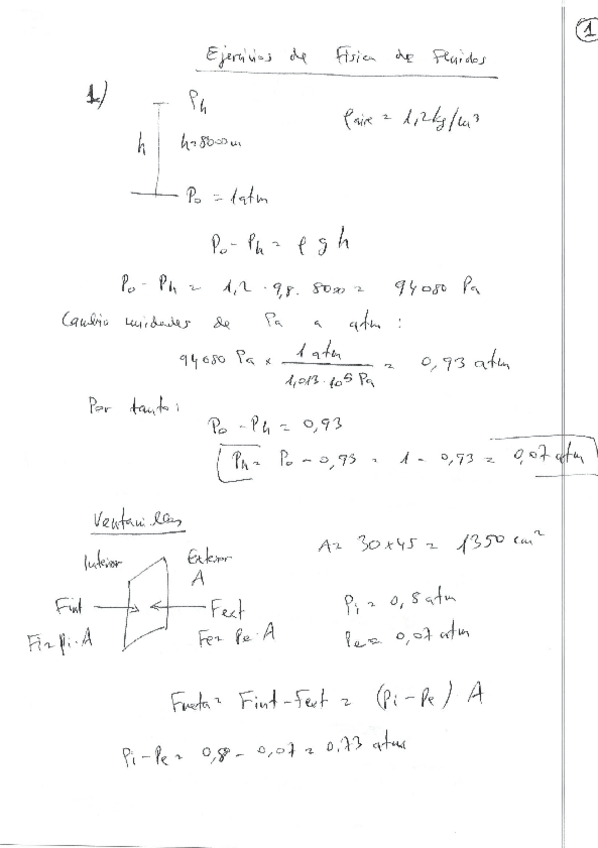 1
Ejercicios de Física de Fluidos
1.) Ph
ρaire = 1,2 kg/m³
h h=8000m
P₀ = 1atm
P₀ - Ph = ρ g h
P₀ - Ph = 1,2 · 9,8 · 8000 = 94080 Pa
Cambio unidades de Pa a atm :
94080 Pa × 1 atm / 1,013·10⁵ Pa = 0,93 atm
Por tanto:
P₀ - Ph = 0,93
Ph = P₀ - 0,93 = 1 - 0,93 = 0,07 atm
Ventanillas
Interior Exterior
A
A = 30×45 = 1350 cm²
Fint Fext
Fi = Pi·A Fe = Pe·A
Pi = 0,8 atm
Pe = 0,07 atm
Fneta = Fint - Fext = (Pi - Pe) A
Pi - Pe = 0,8 - 0,07 = 0,73 atm